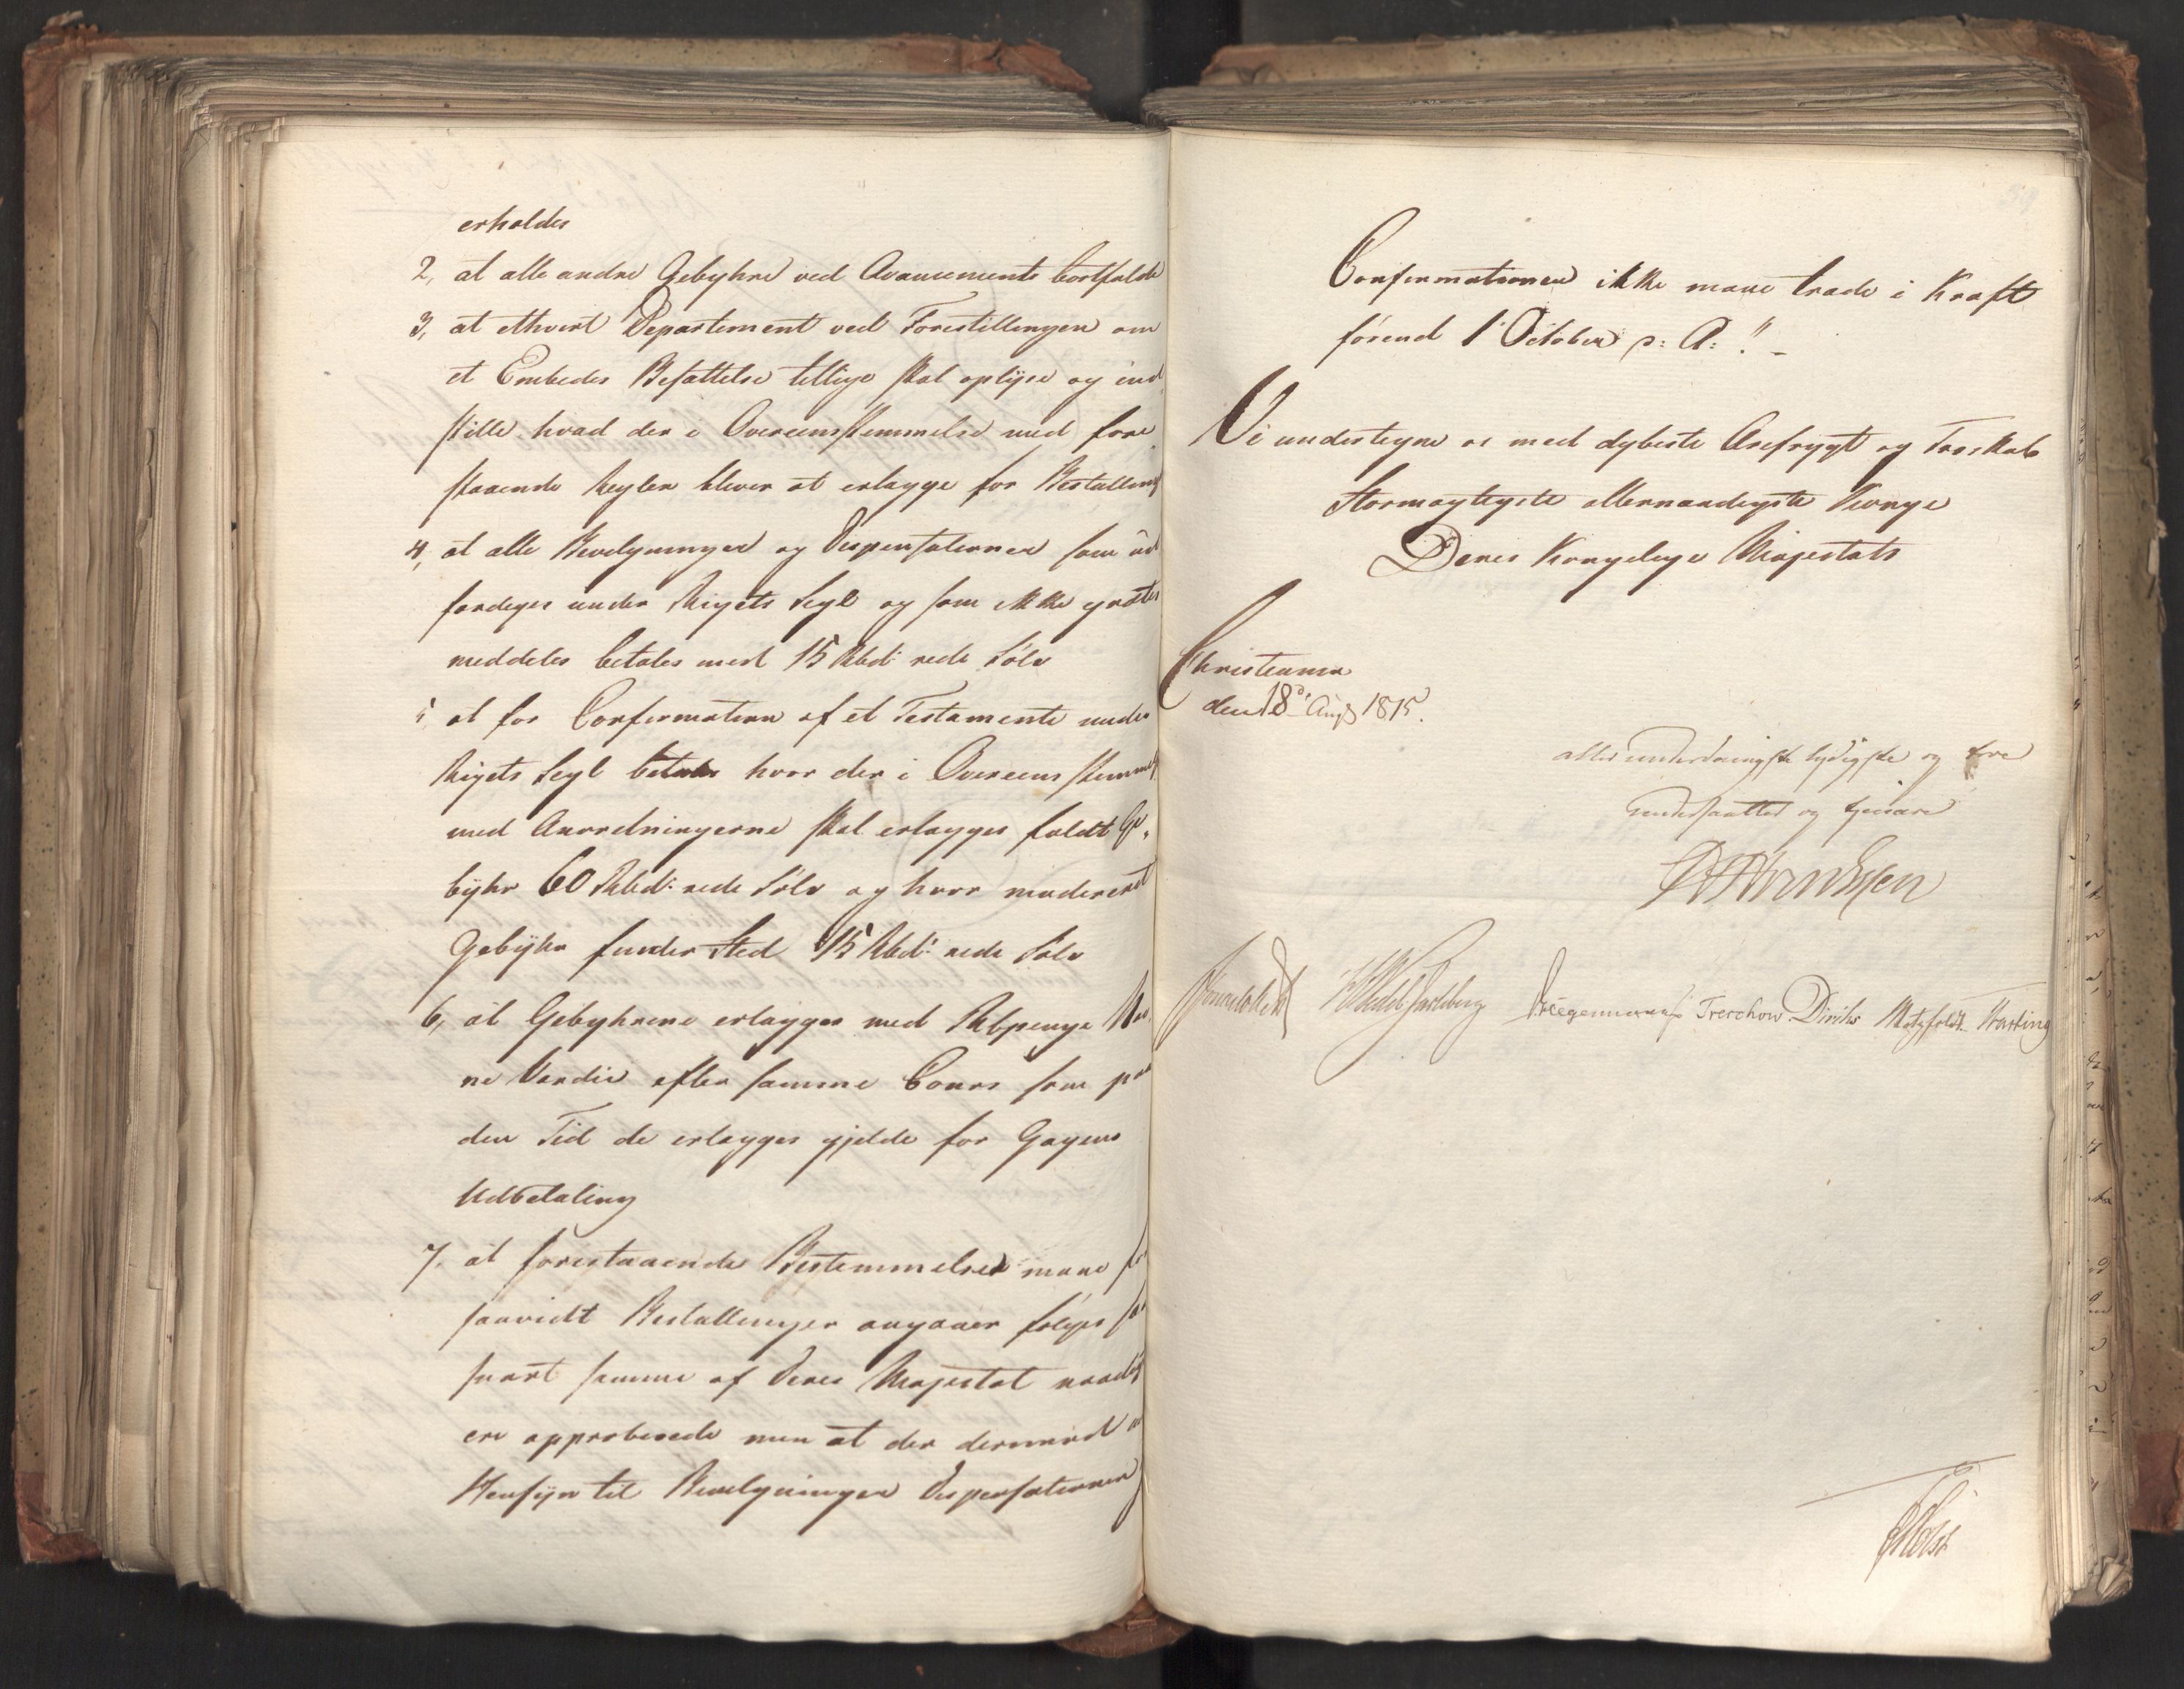 erholdes
2, at alle andre Gebyhrer ved Avancements bortfalde
3, at ethvert Departement ved Forestillingen om
et Embedes Besættelse tillige skal oplyse og ind
stille hvad der i Overeensstemmelse med fore
staaende Regler bliver at erlægge for Bestalling
4, at alle Bevilgninger og Dispensationer som ud
færdiges under Rigets Segl og som ikke gratis
meddeles betales med 15 Rbd: rede Sølv
5, at for Confirmation af et Testamente under
Rigets Segl betales hvor der i Overeensstemmelse
med Anordningerne skal erlægges fuldt Ge,
byhr 60 Rbd: rede Sølv og hvor modereret
Gebyhr finder Sted 15 Rbd: rede Sølv
6, at Gebyhrene erlægges med Rbpenge
Værdie efter samme Cours som paa
den Tid de erlægges gjelde for Gagens
Udbetaling
7, at forestaaende Bestemmelser maae for
saavidt Bestallinger angaaer følges saa
snart samme af Deres Majestæt naadigst
ere approberede men at der derimod
Hensyn til Bevilgninger Dispensationer
59
Confirmationer ikke maae træde i Kraft
førend 1 October d: A: !! –
Vi undertegne os med dybeste Ærefrygt og Troskab
Stormægtigste allernaadigste Konge
Deres Kongelige Majestæts
Christiania
den 18de Aug 1815.
allerunderdanigste lydigste og troe
undersaatter og tjenere
Sommerhielm HWedel Jarlsberg Krieger Treschow Diriks Motzfeldt Hasting
Holst